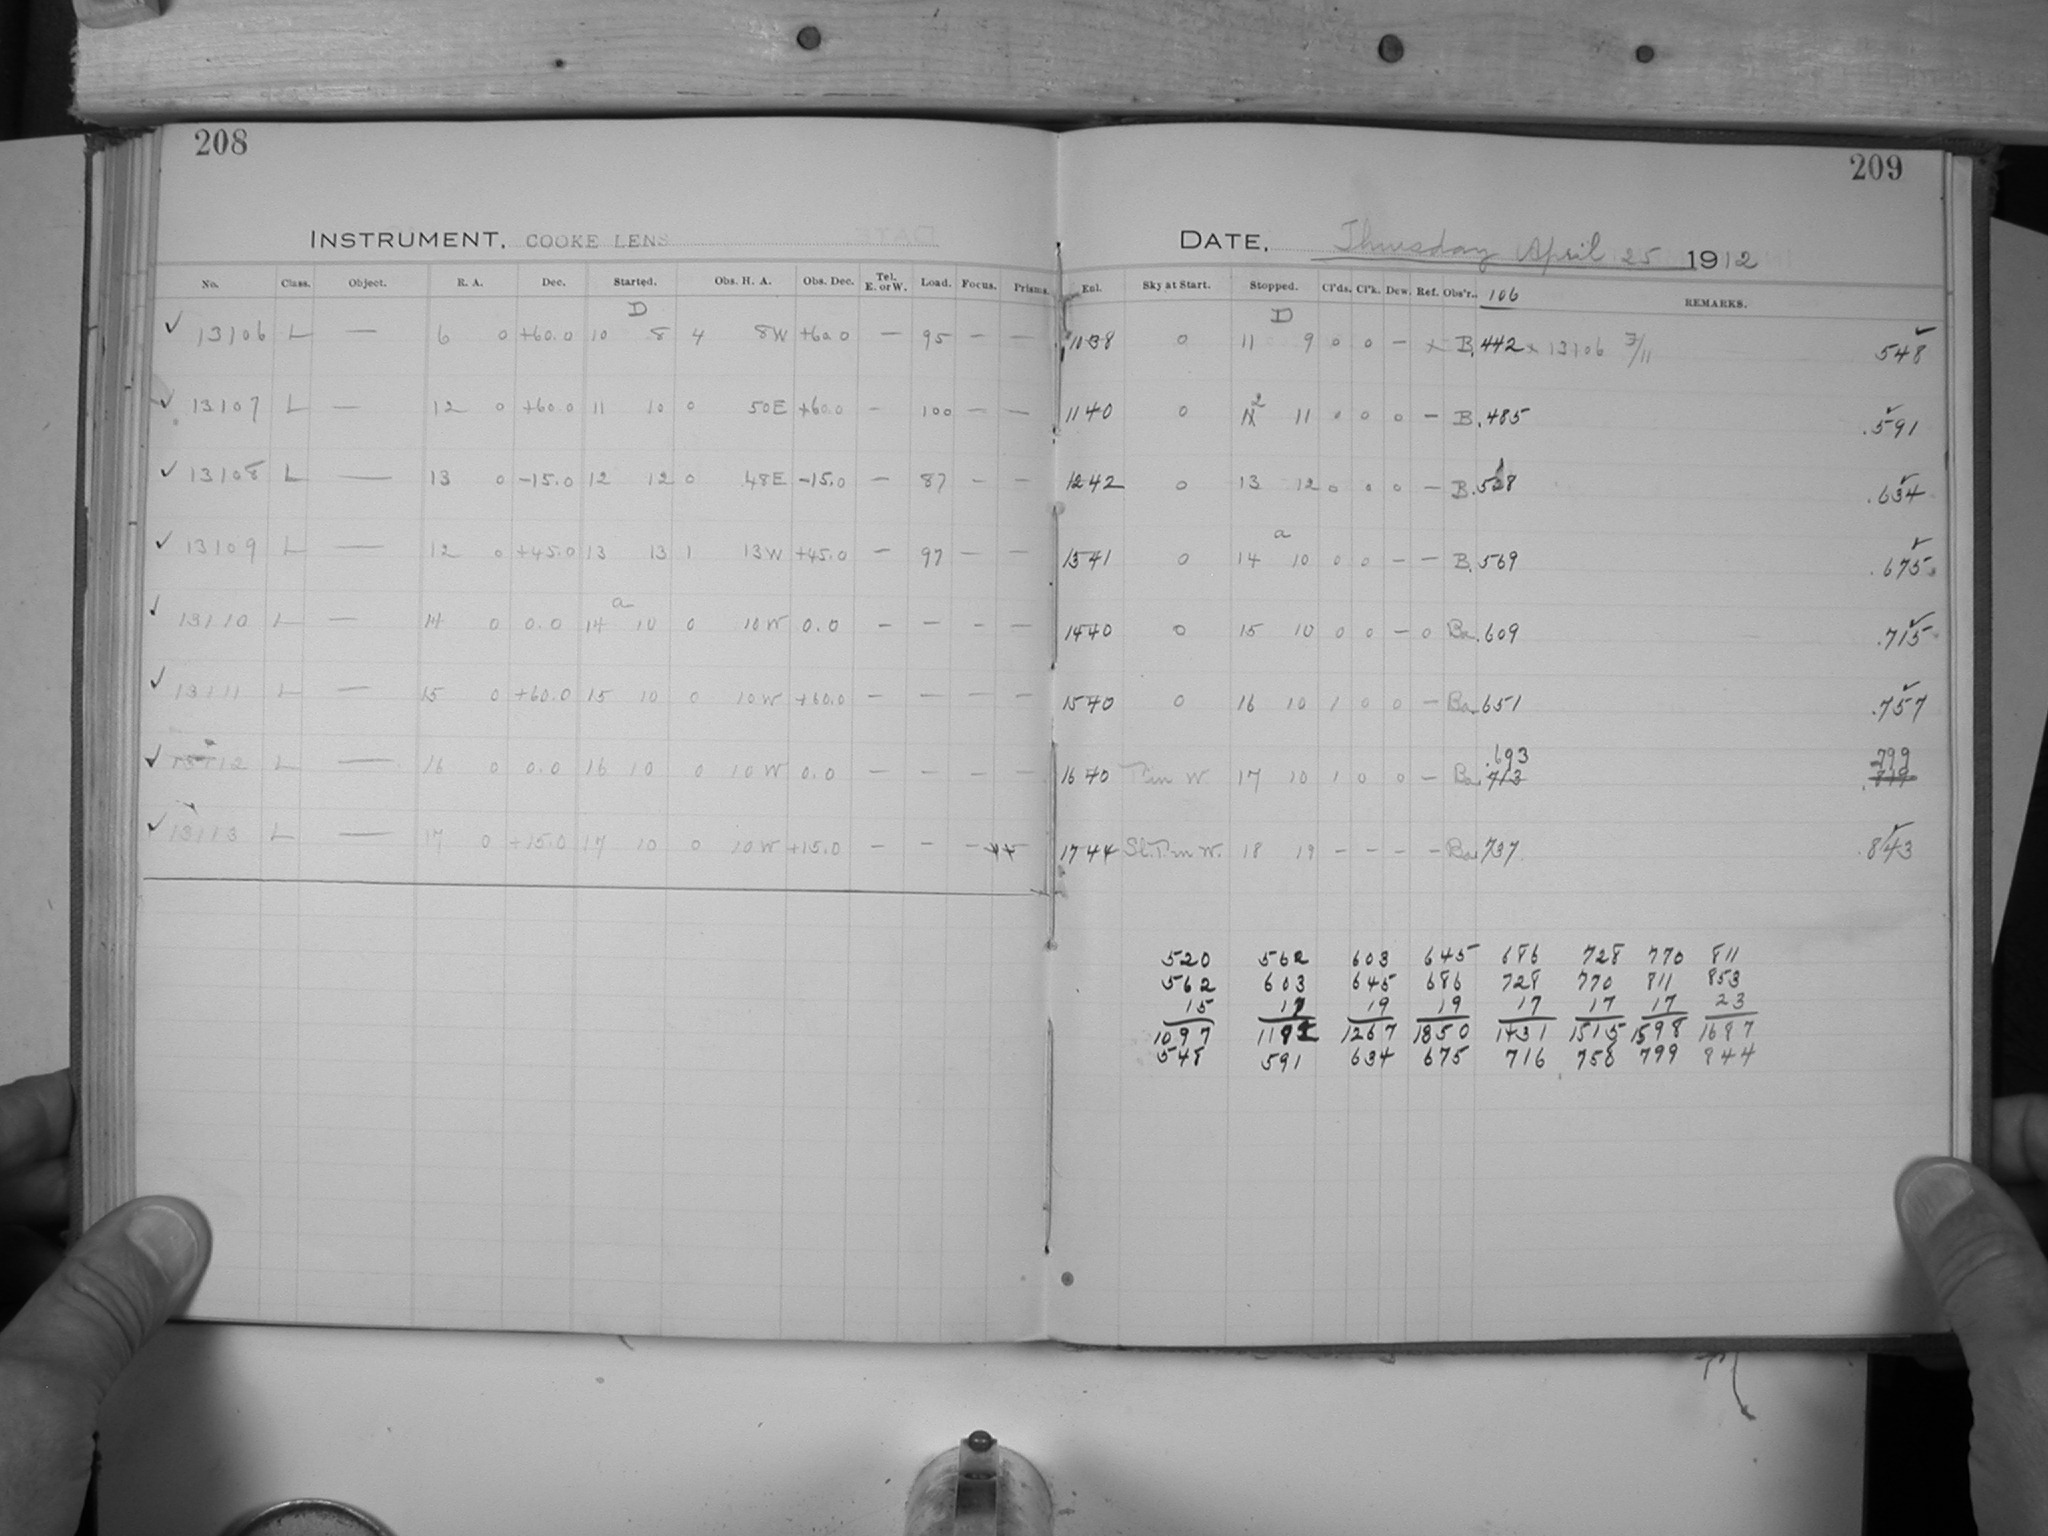 208
209
INSTRUMENT, COOKE LENS
DATE, Thursday April 25 1912
No. Class. Object. R. A. Dec. Started. Obs. H. A. Obs. Dec. Tel. E. or W. Load. Focus. Prisms.
Exl. Sky at Start. Stopped. Cl'ds. Cl'k. Dew. Ref. Obs'r. 106 REMARKS.
D
D
✓ 13106 L — 6 0 +60.0 10 8 4 8W +60.0 — 95 — — 1038 0 11 9 0 0 — x B .442 x 13106 3/11 548
✓ 13107 L — 12 0 +60.0 11 10 0 50E +60.0 — 100 — — 1140 0 2 11 0 0 0 — B .485 .591
✓ 13108 L — 13 0 -15.0 12 12 0 48E -15.0 — 87 — — 1242 0 13 12 0 0 0 — B .528 .634
✓ 13109 L — 12 0 +45.0 13 13 1 13W +45.0 — 97 — — 1341 0 14 10 0 0 — — B .569 .675
a
a
✓ 13110 L — 14 0 0.0 14 10 0 10W 0.0 — — — — 1440 0 15 10 0 0 — 0 Ba .609 .715
✓ 13111 L — 15 0 +60.0 15 10 0 10W +60.0 — — — — 1540 0 16 10 1 0 0 — Ba .651 .757
.693 799
✓ 13112 L — 16 0 0.0 16 10 0 10W 0.0 — — — — 1640 17 10 1 0 0 — Ba .713 .819
✓ 13113 L — 17 0 +15.0 17 10 0 10W +15.0 — — — 1744 18 19 — — — — Ba .737 .843
520 562 603 645 686 728 770 811
562 603 645 686 728 770 811 853
15 17 19 19 17 17 17 23
1097 1182 1267 1350 1431 1515 1598 1687
548 591 634 675 716 758 799 844